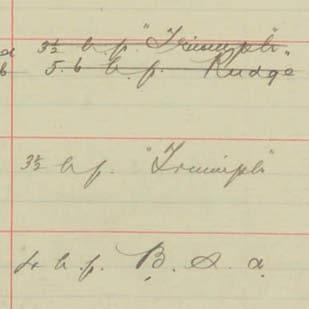 a 3½ h.p. "Triumph"
b 5.6 h.p. Rudge
3½ h.p. "Triumph"
4 h.p. B.S.A.